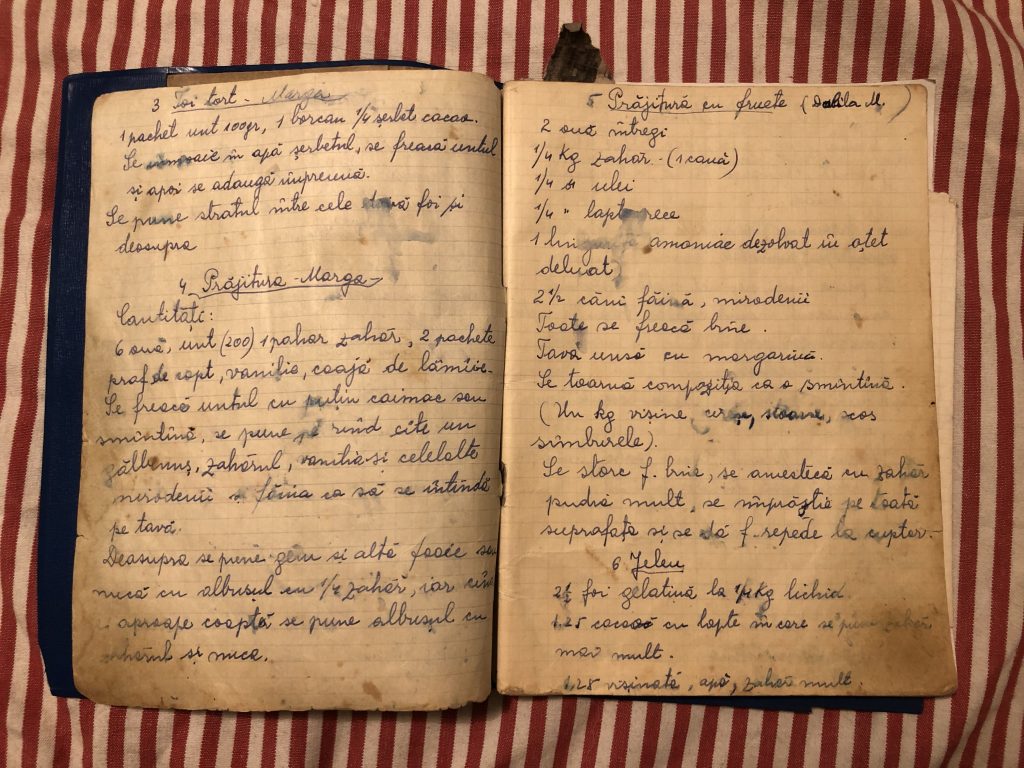 3 Foi tort - Marga
1 pachet unt 100gr, 1 borcan 1/4 șerbet cacao.
Se înmoaie în apă șerbetul, se freacă untul
și apoi se adaugă împreună.
Se pune stratul între cele două foi și
deasupra
4 Prăjitura - Marga
Cantități:
6 ouă, unt (200) 1 pahar zahăr, 2 pachete
praf de copt, vanilie, coajă de lămîie.
Se freacă untul cu puțin caimac sau
smîntînă, se pune pe rînd cîte un
gălbenuș, zahărul, vanilia și celelalte
mirodenii și făina ca să se întindă
pe tavă.
Deasupra se pune gem și altă foaie sau
nucă cu albușul cu 1/4 zahăr, iar cînd
aproape coaptă se pune albușul cu
zahărul și nuca.
5 Prăjitură cu fructe (Dalila M.)
2 ouă întregi
1/4 kg zahăr - (1 cană)
1/4 " ulei
1/4 " lapte rece
1 linguriță amoniac dezolvat în oțet
delicat
2 1/2 căni făină, mirodenii
Toate se freacă bine.
Tavă unsă cu margarină.
Se toarnă compoziția ca o smîntînă.
(Un kg vișine, cireșe, scoase, scos
sîmburele).
Se storc f. bine, se amestecă cu zahăr
pudră mult, se împrăștie pe toată
suprafața și se dă f. repede la cuptor.
6 Jeleu
foi gelatină la 1/4 kg lichid
1.25 cacao cu lapte în care se pune zahăr
mai mult.
1.25 vișinată, apă, zahăr mult.